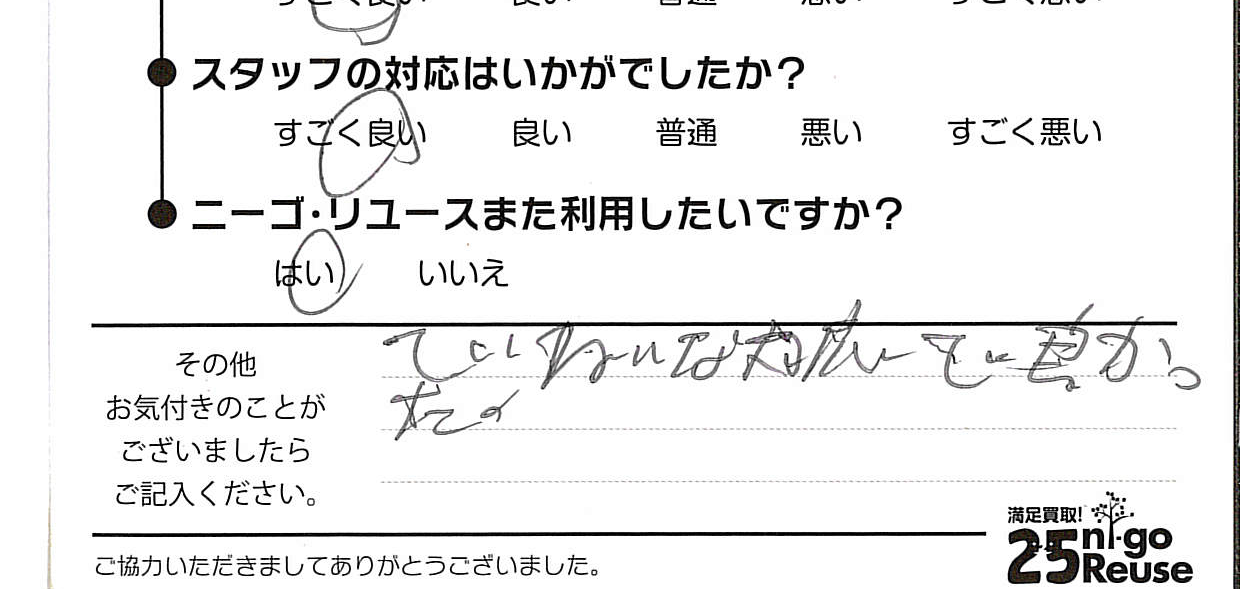 すごく良い 良い 普通 悪い すごく悪い
スタッフの対応はいかがでしたか?
すごく良い 良い 普通 悪い すごく悪い
ニーゴ・リユースまた利用したいですか?
はい いいえ
その他
お気付きのことが
ございましたら
ご記入ください。
ていねいな対応で良かっ
た。
満足買取!
25 ni-go
Reuse
ご協力いただきましてありがとうございました。